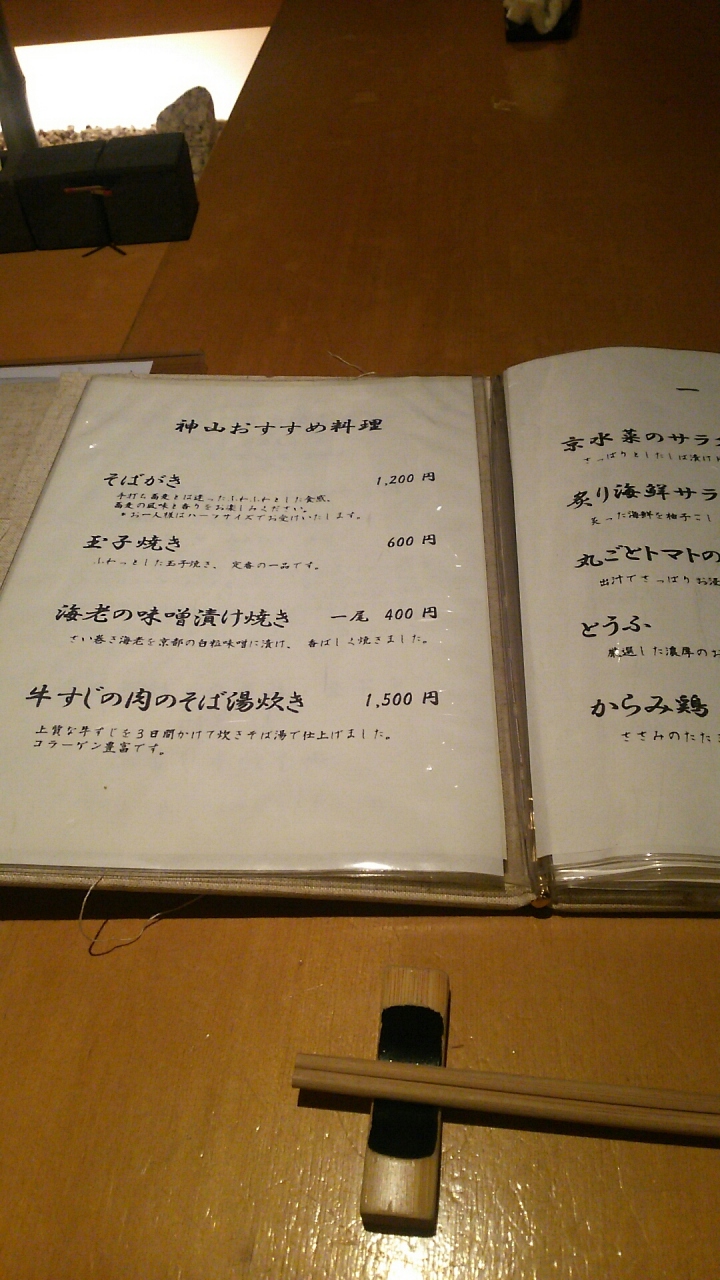 神山おすすめ料理
そばがき 1,200 円
手打ち蕎麦とは違ったふわふわとした食感、
蕎麦の風味と香りをお楽しみください。
*お一人様はハーフサイズでお受けいたします。
玉子焼き 600 円
ふわっとした玉子焼き、定番の一品です。
海老の味噌漬け焼き 一尾 400 円
さい巻き海老を京都の白粒味噌に漬け、香ばしく焼きました。
牛すじの肉のそば湯炊き 1,500 円
上質な牛すじを3日間かけて炊きそば湯で仕上げました。
コラーゲン豊富です。
一
京水菜のサラ
さっぱりとしたしば漬け
炙り海鮮サラ
炙った海鮮を柚子こし
丸ごとトマトの
出汁でさっぱりお浸
とうふ
厳選した濃厚のお
からみ鶏
ささみのたた